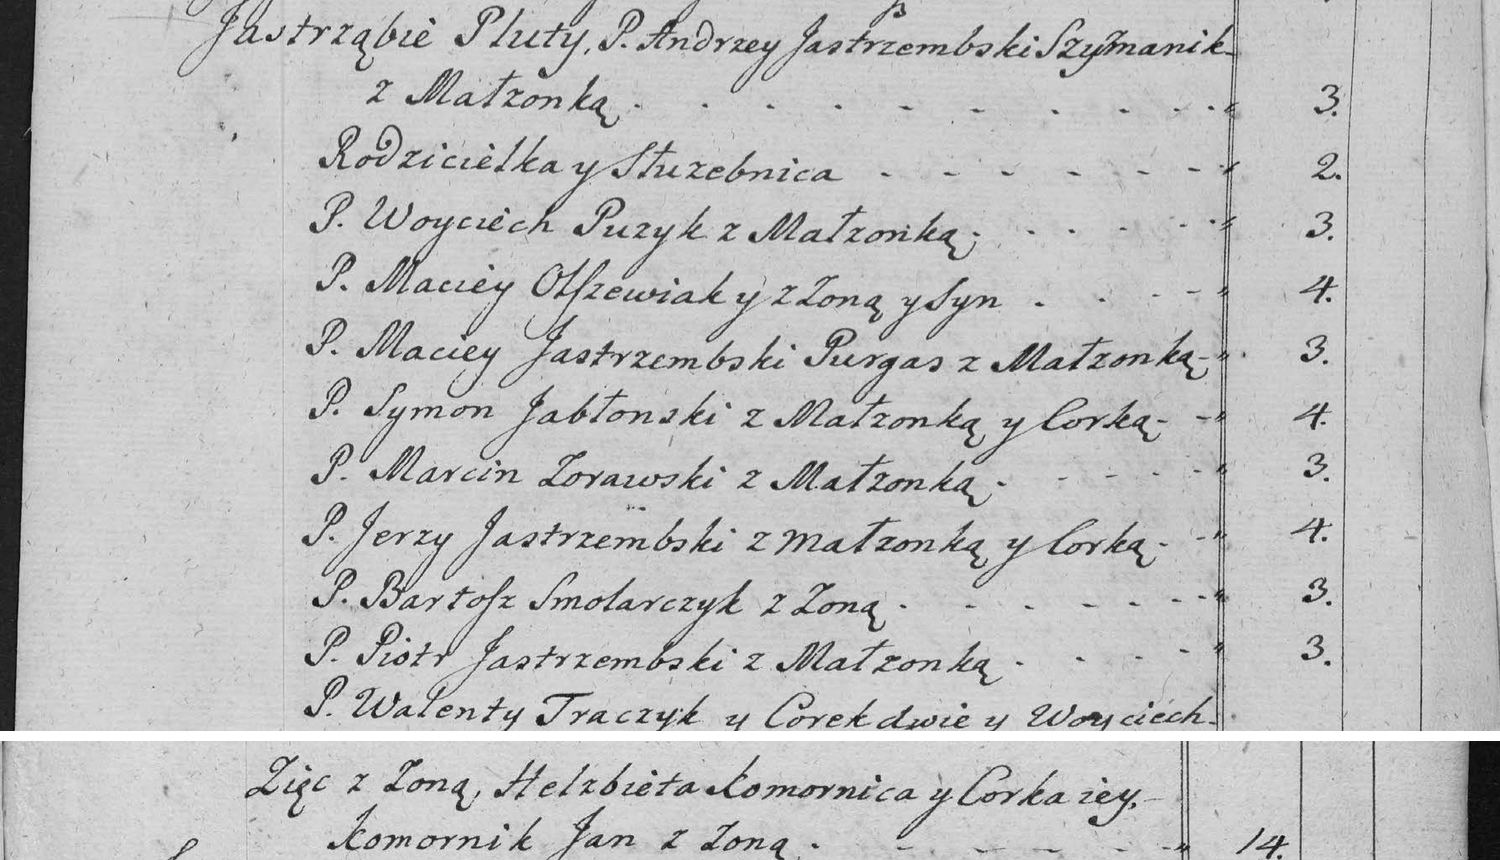 Jastrząbie Pluty, P. Andrzey Jastrzembski Szymanik
z Małzonką. 3.
Rodzicielka y Słuzebnica 2.
P. Woyciech Puzyk z Małzonką. 3.
P. Maciey Olszewiak y z Zoną y Syn 4.
P. Maciey Jastrzembski Purgas z Małzonką 3.
P. Symon Jabłonski z Małzonką y Corką 4.
P. Marcin Zorawski z Małzonką 3.
P. Jerzy Jastrzembski z małzonką y Corką 4.
P. Bartosz Smolarczyk z Zoną 3.
P. Piotr Jastrzembski z Małzonką 3.
P. Walenty Traczyk y Corek dwie y Woyciech
Zięc z Zoną, Helzbieta komornica y Corka iey.
komornik Jan z Zoną 14.